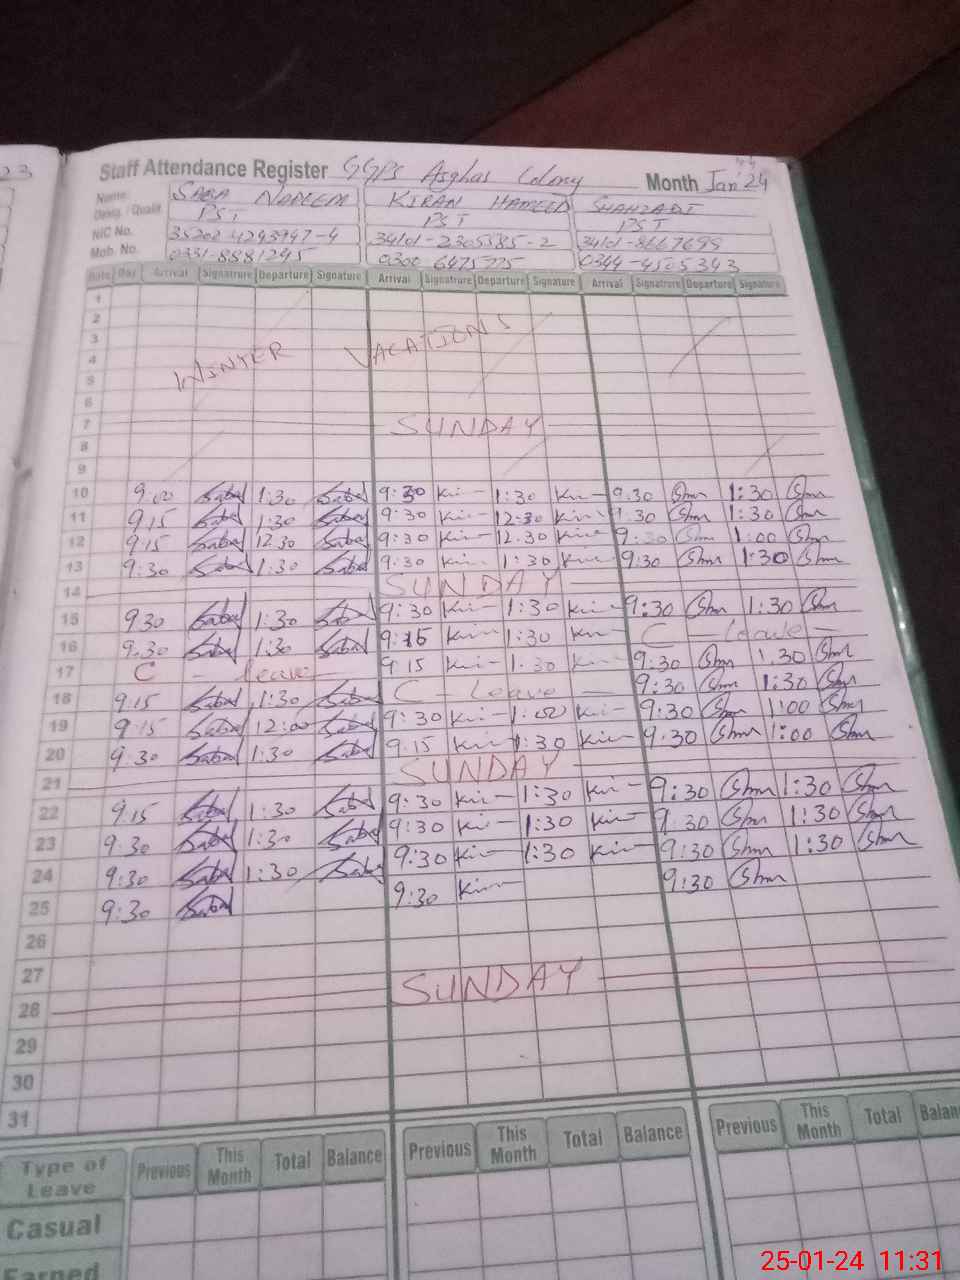 23
Staff Attendance Register GGPS Asghar Colony Month Jan'24
Name: SABA NADEEM KIRAN HAMEED SHAHZADI
Desig. / Qualif. PST PST PST
NIC No. 35202-4293947-4 34101-2305585-2 34101-8667699
Mob. No. 0331-8881245 0300 6475775 0344-4505343
Date Day Arrival Signature Departure Signature Arrival Signature Departure Signature Arrival Signature Departure Signature
1
2
3
4 WINTER VACATIONS
5
6
7 SUNDAY
8
9
10 9:00 Saba 1:30 Saba 9:30 Kir 1:30 Kir 9:30 Shm 1:30 Shm
11 9:15 Saba 1:30 Saba 9:30 Kir 12:30 Kir 9:30 Shm 1:30 Shm
12 9:15 Saba 12:30 Saba 9:30 Kir 12:30 Kir 9:30 Shm 1:00 Shm
13 9:30 Saba 1:30 Saba 9:30 Kir 1:30 Kir 9:30 Shm 1:30 Shm
14 SUNDAY
15 9:30 Saba 1:30 Saba 9:30 Kir 1:30 Kir 9:30 Shm 1:30 Shm
16 9:30 Saba 1:30 Saba 9:15 Kir 1:30 Kir C - leave -
17 C - leave - 9:15 Kir 1:30 Kir 9:30 Shm 1:30 Shm
18 9:15 Saba 1:30 Saba C - Leave - 9:30 Shm 1:30 Shm
19 9:15 Saba 12:00 Saba 9:30 Kir 1:00 Kir 9:30 Shm 1:00 Shm
20 9:30 Saba 1:30 Saba 9:15 Kir 1:30 Kir 9:30 Shm 1:00 Shm
21 SUNDAY
22 9:15 Saba 1:30 Saba 9:30 Kir 1:30 Kir 9:30 Shm 1:30 Shm
23 9:30 Saba 1:30 Saba 9:30 Kir 1:30 Kir 9:30 Shm 1:30 Shm
24 9:30 Saba 1:30 Saba 9:30 Kir 1:30 Kir 9:30 Shm 1:30 Shm
25 9:30 Saba 9:30 Kir 9:30 Shm
26
27
28 SUNDAY
29
30
31
Type of Leave Previous This Month Total Balance Previous This Month Total Balance Previous This Month Total Balan
Casual
Earned
25-01-24 11:31